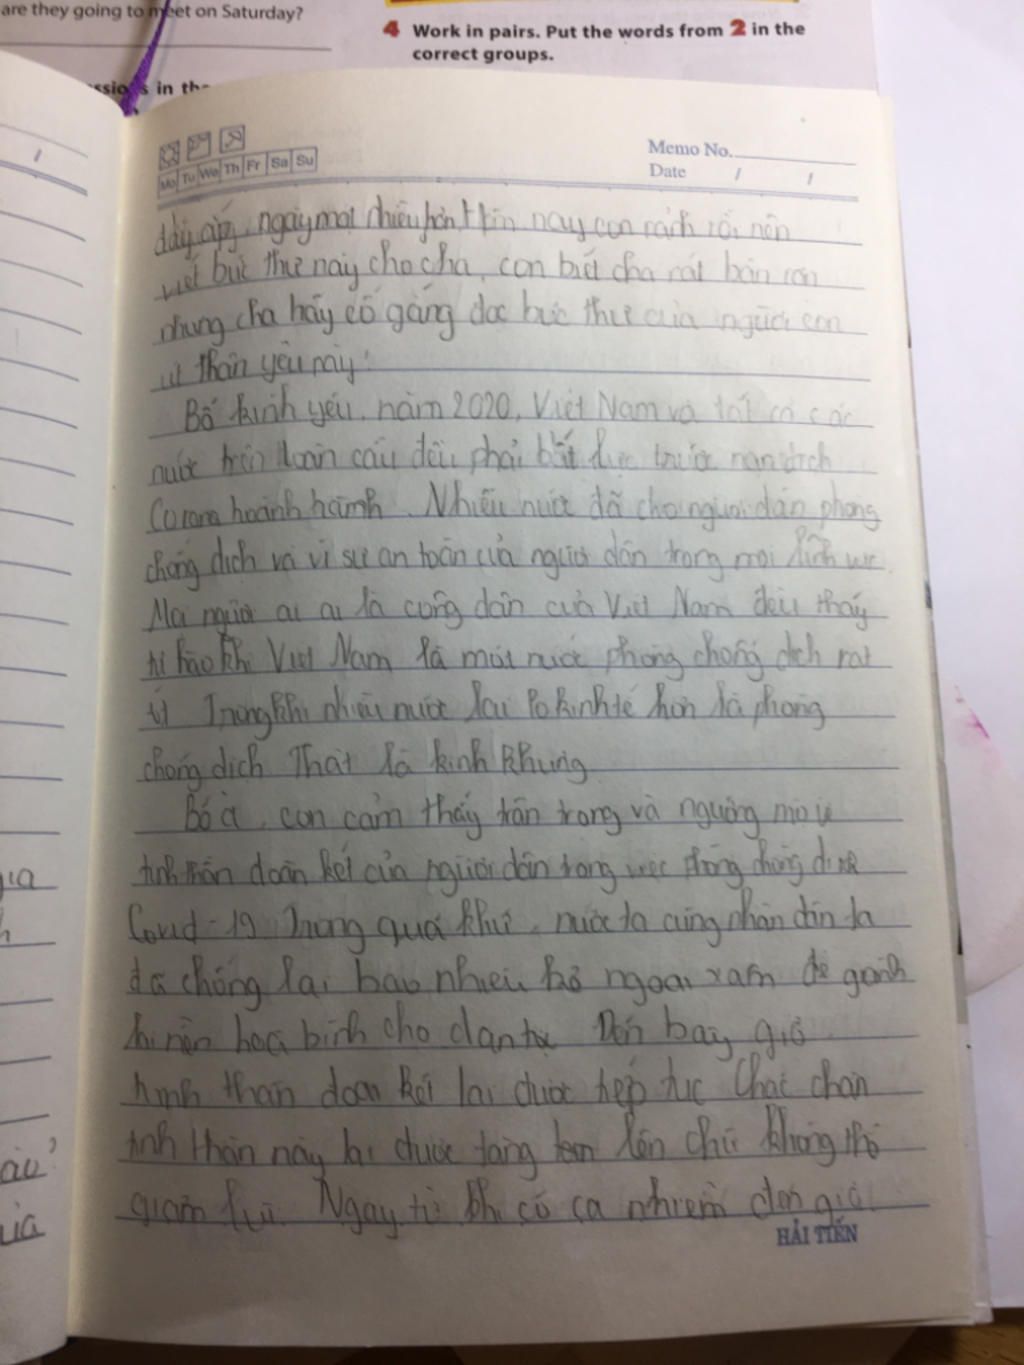 are they going to meet on Saturday?
4 Work in pairs. Put the words from 2 in the
correct groups.
in the
Memo No.
Mo Tu We Th Fr Sa Su
Date / /
đầy ắp, ngày một nhiều hơn. Hôm nay con rảnh rỗi nên
viết bức thư này cho cha, con biết cha rất bận rộn
nhưng cha hãy cố gắng đọc bức thư của người con
thân yêu này!
Bố kính yêu, năm 2020, Việt Nam và tất cả các
nước trên toàn cầu đều phải bất lực trước nạn dịch
Corona hoành hành. Nhiều nước đã cho người dân phòng
chống dịch và vì sự an toàn của người dân trong mọi lĩnh vực.
Mọi người ai ai là công dân của Việt Nam đều thấy
tự hào khi Việt Nam là một nước phòng chống dịch rất
Trong khi nhiều nước lại lo kinh tế hơn là phòng
chống dịch Thật là kinh khủng
Bố à, con cảm thấy trân trọng và ngưỡng mộ vì
tinh thần đoàn kết của người dân trong việc phòng chống dịch
Covid-19 Trong quá khứ, nước ta cùng nhân dân ta
đã chống lại bao nhiêu kẻ ngoại xâm để giành
lại nền hoà bình cho dân tộc Đến bây giờ
tinh thần đoàn kết lại được tiếp tục Chắc chắn
tinh thần này lại được tăng lên chứ không thể
giảm Ngay từ khi có ca nhiễm
HẢI TIẾN